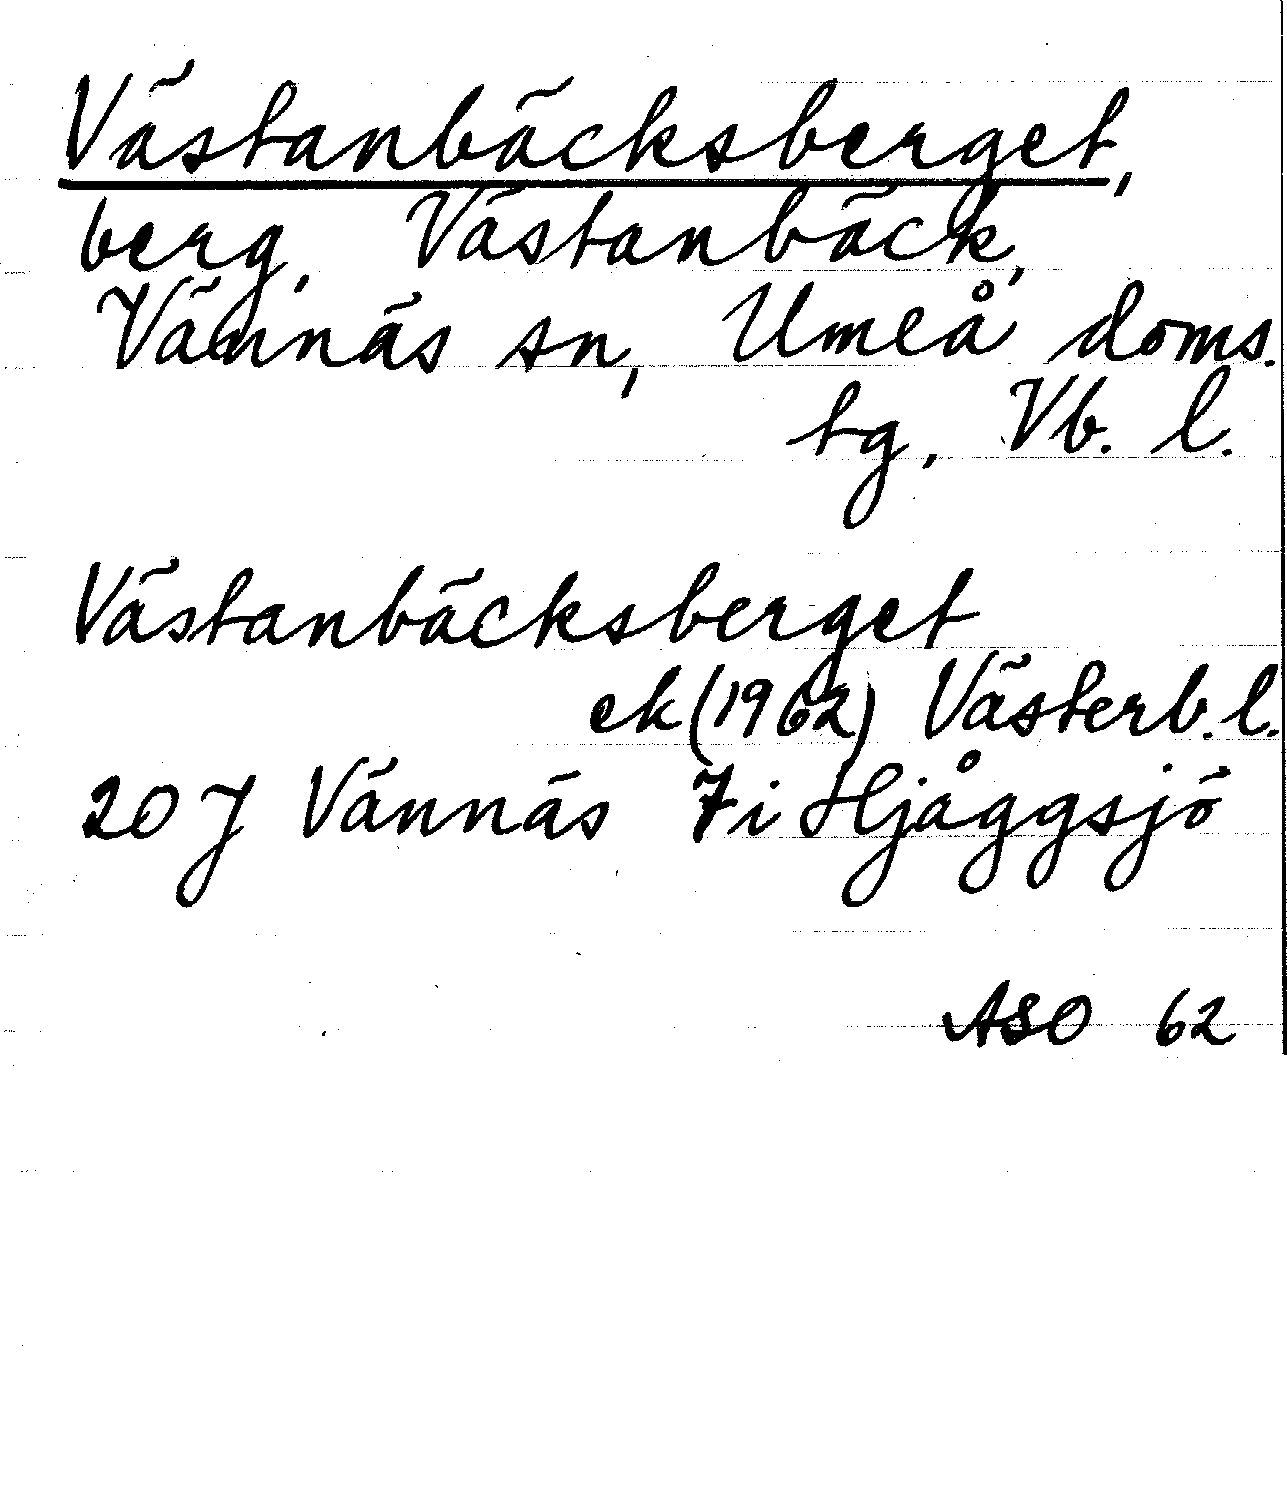 Västanbäcksberget,
berg, Västanbäck,
Vännäs sn, Umeå doms.
tg, Vb. l.
Västanbäcksberget
ek (1962) Västerb. l.
20 J Vännäs 7i Hjåggsjö
ASO 62